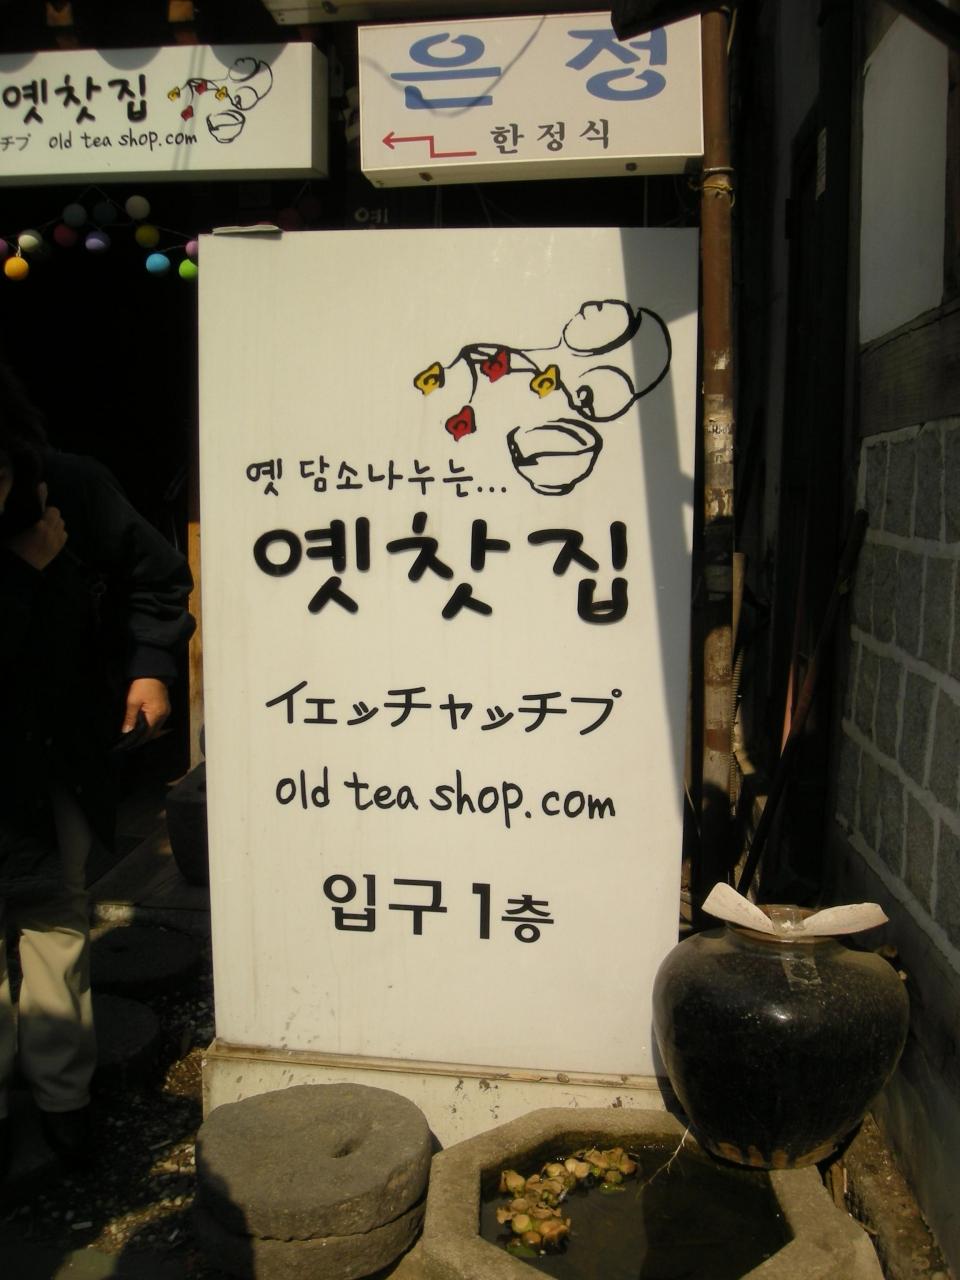 옛찻집
チプ old tea shop.com
은정
한정식
옛 담소나누는...
옛찻집
イエッチャッチプ
old tea shop.com
입구 1층